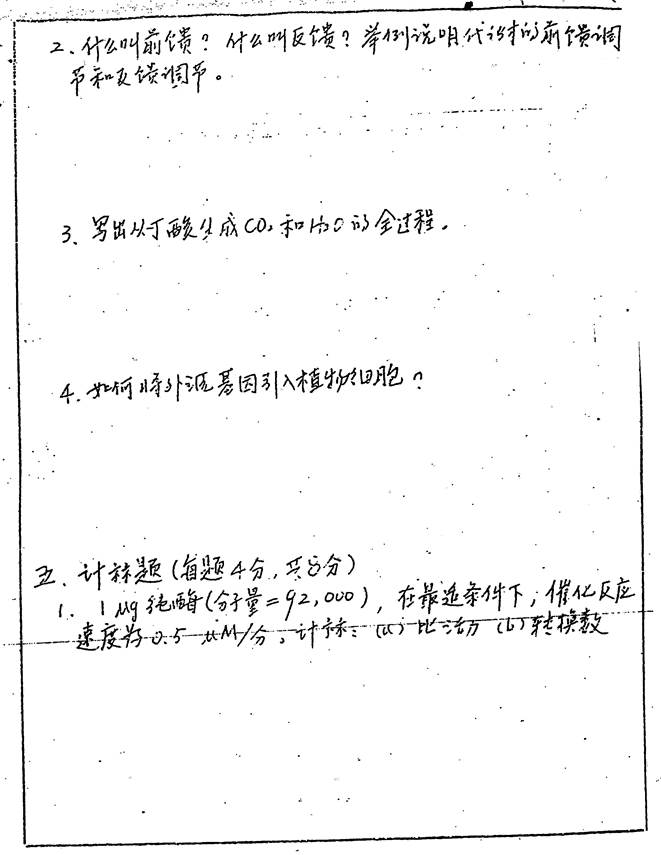 2、什么叫前馈？什么叫反馈？举例说明代谢的前馈调
节和反馈调节。
3、写出从丁酸生成CO₂和H₂O的全过程。
4、如何将外源基因引入植物细胞？
五、计标题(每题4分,共8分)
1. 1μg纯酶(分子量=92,000), 在最适条件下,催化反应
速度为0.5μM/分,计标:(a)比活力(b)转换数